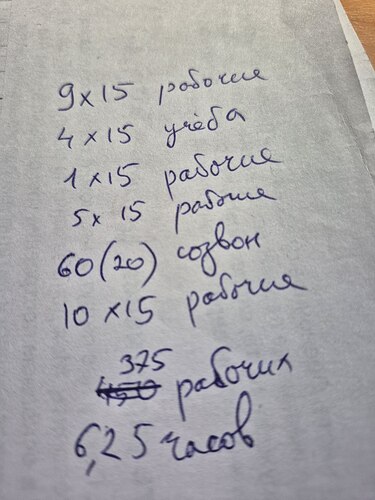 9 x 15 рабочие
4 x 15 учёба
1 x 15 рабочие
5 x 15 рабочие
60 (20) созвон
10 x 15 рабочие
375
450 рабочих
6,25 часов